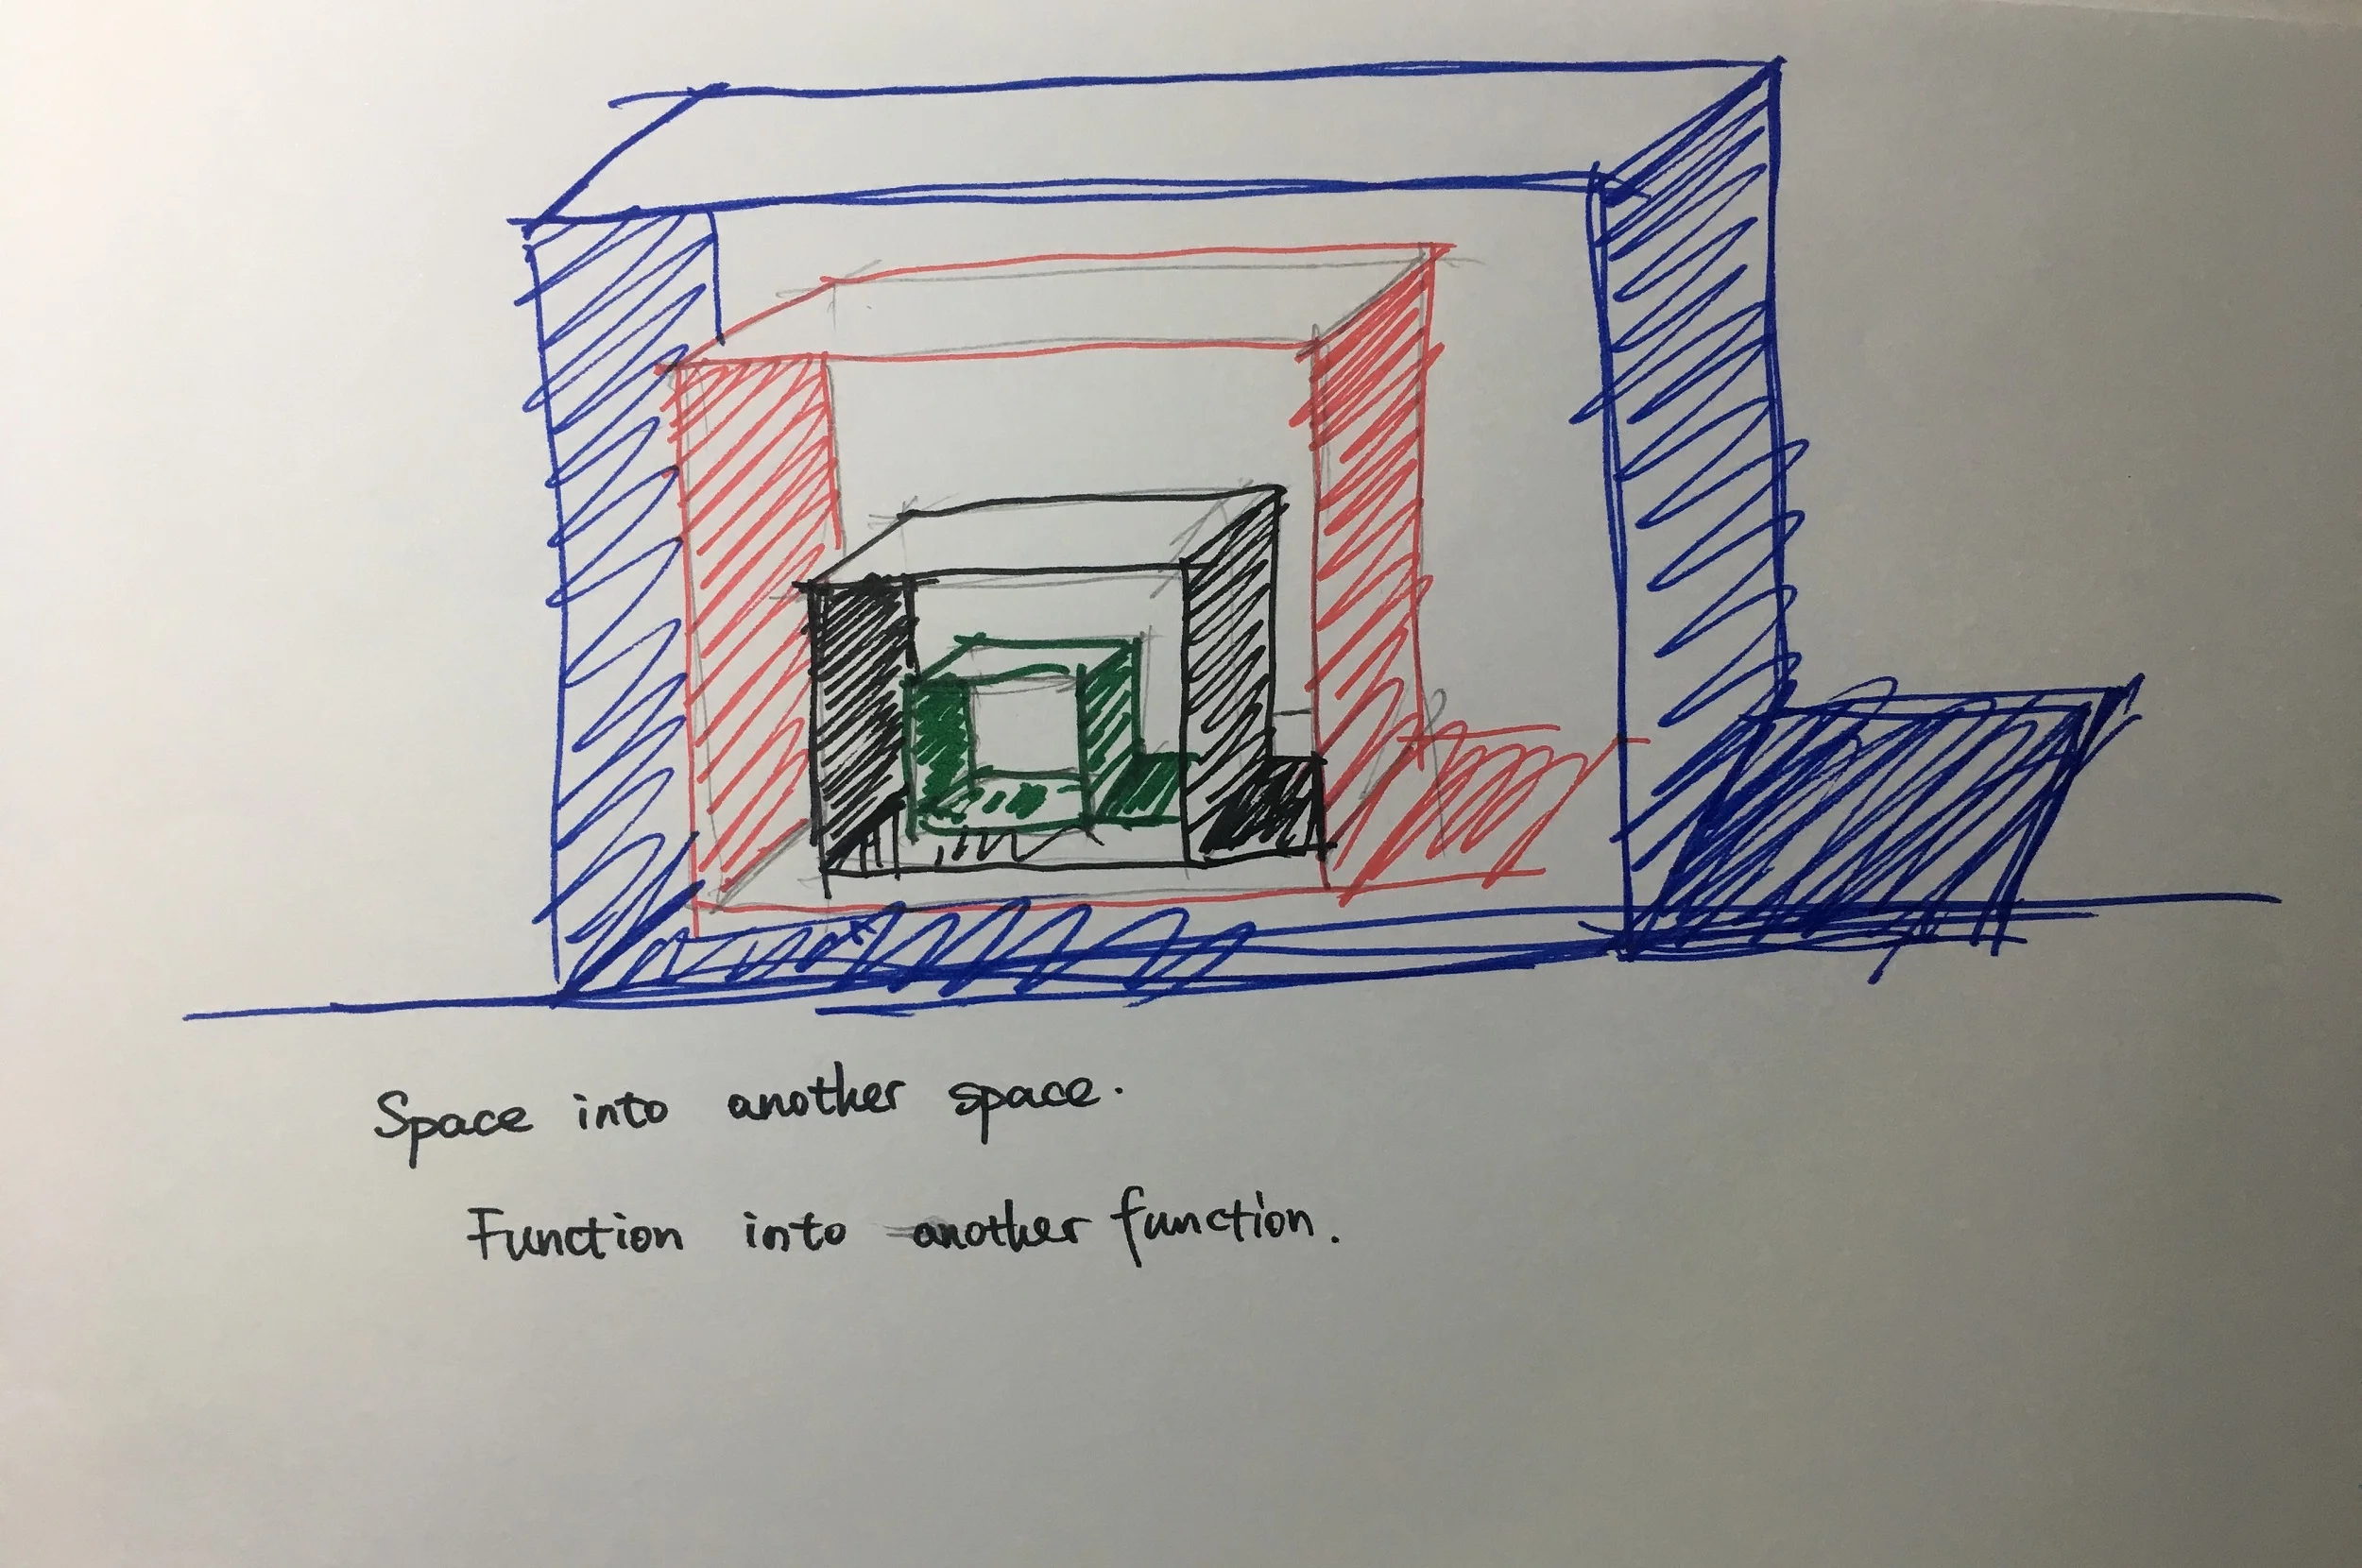 Space into another space.
Function into another function.